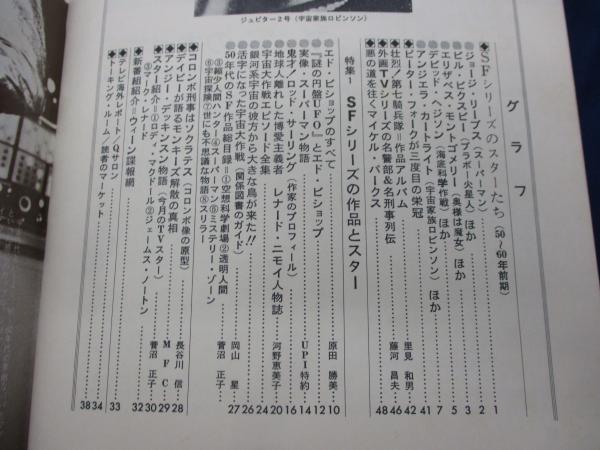 ジュピター2号(宇宙家族ロビンソン)
グラフ
◆SFシリーズのスターたち(50〜60年前期)……1
ジョージ・リーブス(スーパーマン)ほか……2
ビル・ビクスビー(ブラボー火星人)ほか……3
エリザベス・モントゴメリー(奥様は魔女)ほか……5
デビット・ヘジソン(海底科学作戦)ほか……7
アンジェラ・カートライト(宇宙家族ロビンソン)ほか……41
◆ピーター・フォークが三度目の栄冠……42
◆壮烈!第七騎兵隊=作品アルバム……里見 和男 46
◆外画TVシリーズの名警部&名刑事列伝……藤河 昌夫 48
◆悪の道を往くマイケル・パークス
特集・SFシリーズの作品とスター
●エド・ビショップのすべて……原田 勝美 10
●『謎の円盤UFO』とエド・ビショップ……12
●実像・スーパーマン物語……UPI特約 14
●鬼才!ロッド・サーリング(作家のプロフィール)……16
●地球人離れした博愛主義者 レナード・ニモイ人物誌……河野恵美子 20
●宇宙大作戦エピソード全集……24
●銀河系宇宙の彼方から大きな鳥が来た!!……26
●活字になった宇宙大作戦(関係図書のガイド)……岡山 星 27
●50年代のSF作品総目録=①空想科学劇場②透明人間
③縮少人間ハンター④スーパーマン⑤ミステリー・ゾーン
⑥宇宙探険⑦世にも不思議な物語⑧スリラー……菅沼 正子
◆コロンボ刑事はソクラテス(コロンボ像の原型)……長谷川 信 28
◆デイビーが語るモンキーズ解散の真相……MFC 29
◆アンジー・デッキンスン物語(今月のTVスター)……菅沼 正子 30
◆スター紹介=①ロディ・マクドール②ジェームス・ノートン
③マーク・レスター
◆新番組紹介=ウィーン諜報網……32
◆テレビ海外レポート/Qサロン……33
◆トーキング・ルーム/読者のマーケット……34 38